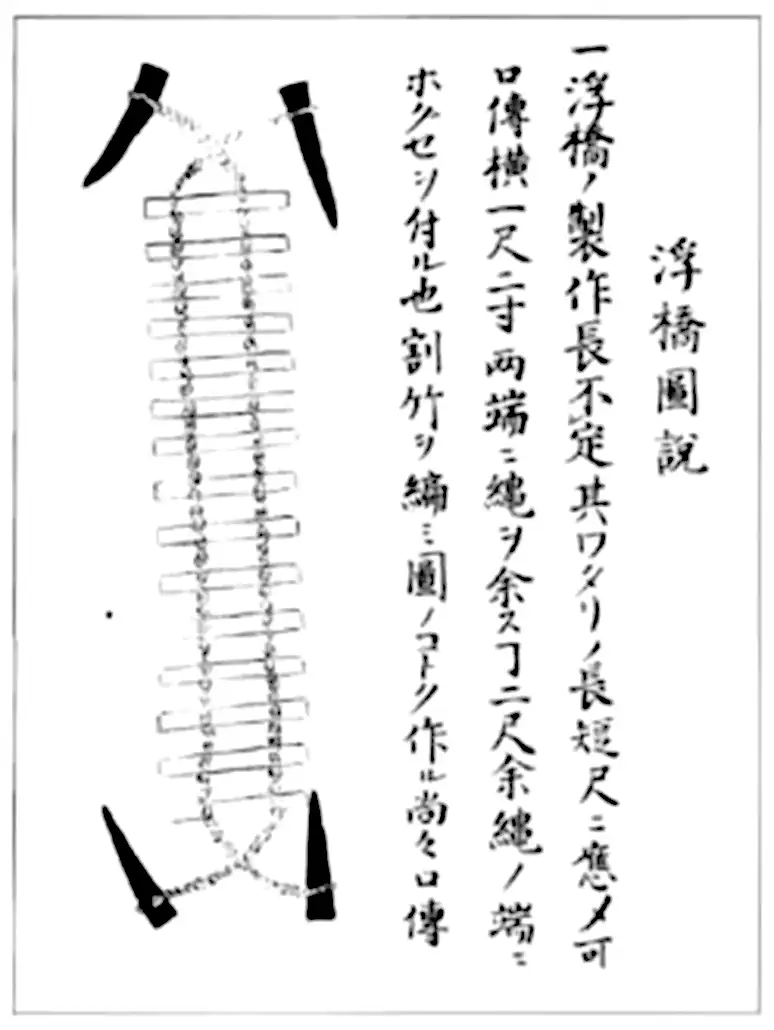 浮橋圖說
一浮橋ノ製作長不定其ワタリノ長短尺ニ應メ可
口傳橫一尺二寸両端ニ繩ヲ余スヿ二尺余繩ノ端ニ
ホクセヲ付ル也割竹ヲ編ミ圖ノコトク作ル尚々口傳